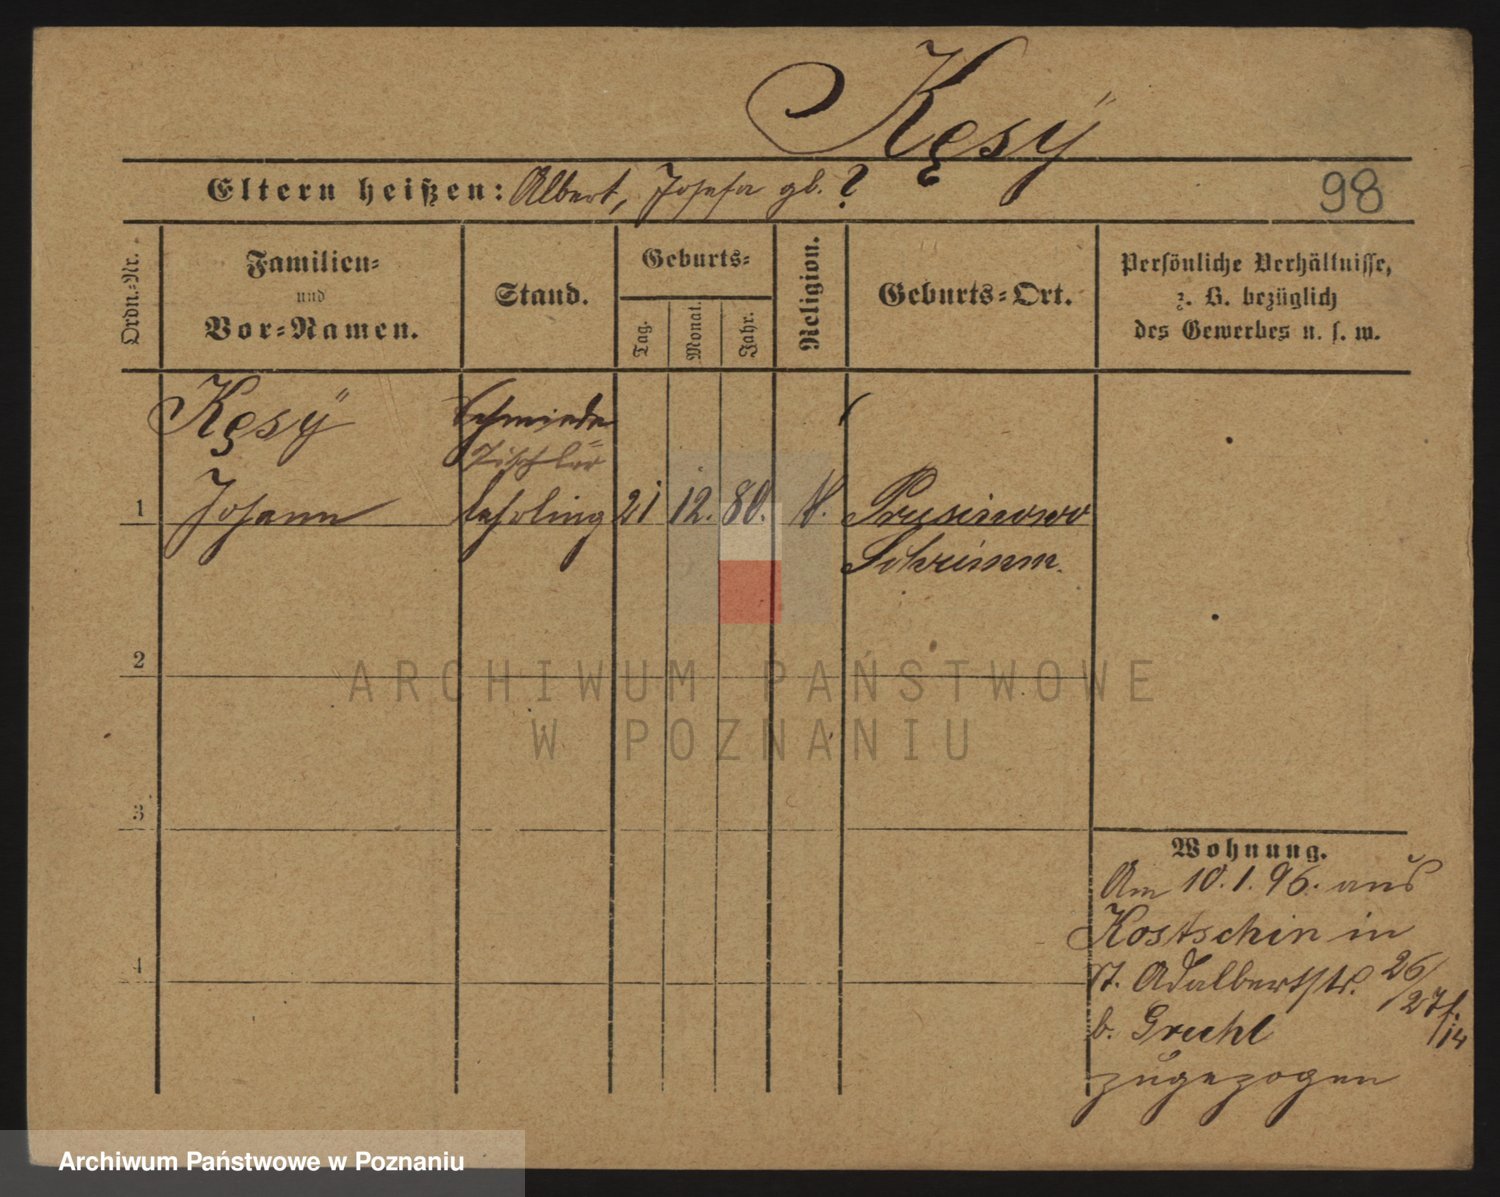 Kęsÿ
Eltern heißen: Albert, Josefa gb. ?
98
Ordn.-Nr.
Familien-
und
Vor-Namen.
Stand.
Geburts-
Tag.
Monat.
Jahr.
Religion.
Geburts-Ort.
Persönliche Verhältnisse,
z. B. bezüglich
des Gewerbes u. s. w.
Kęsÿ
Schmiede
Tischler
1
Johann
lehrling
21
12.
80.
Prusinowo
Schrimm.
2
ARCHIWUM PAŃSTWOWE
W POZNANIU
3
Wohnung.
Am 10.1.96. aus
Kostschin in
4
St. Adalbertstr. 26/
27
b.
14
zugezogen
Archiwum Państwowe w Poznaniu